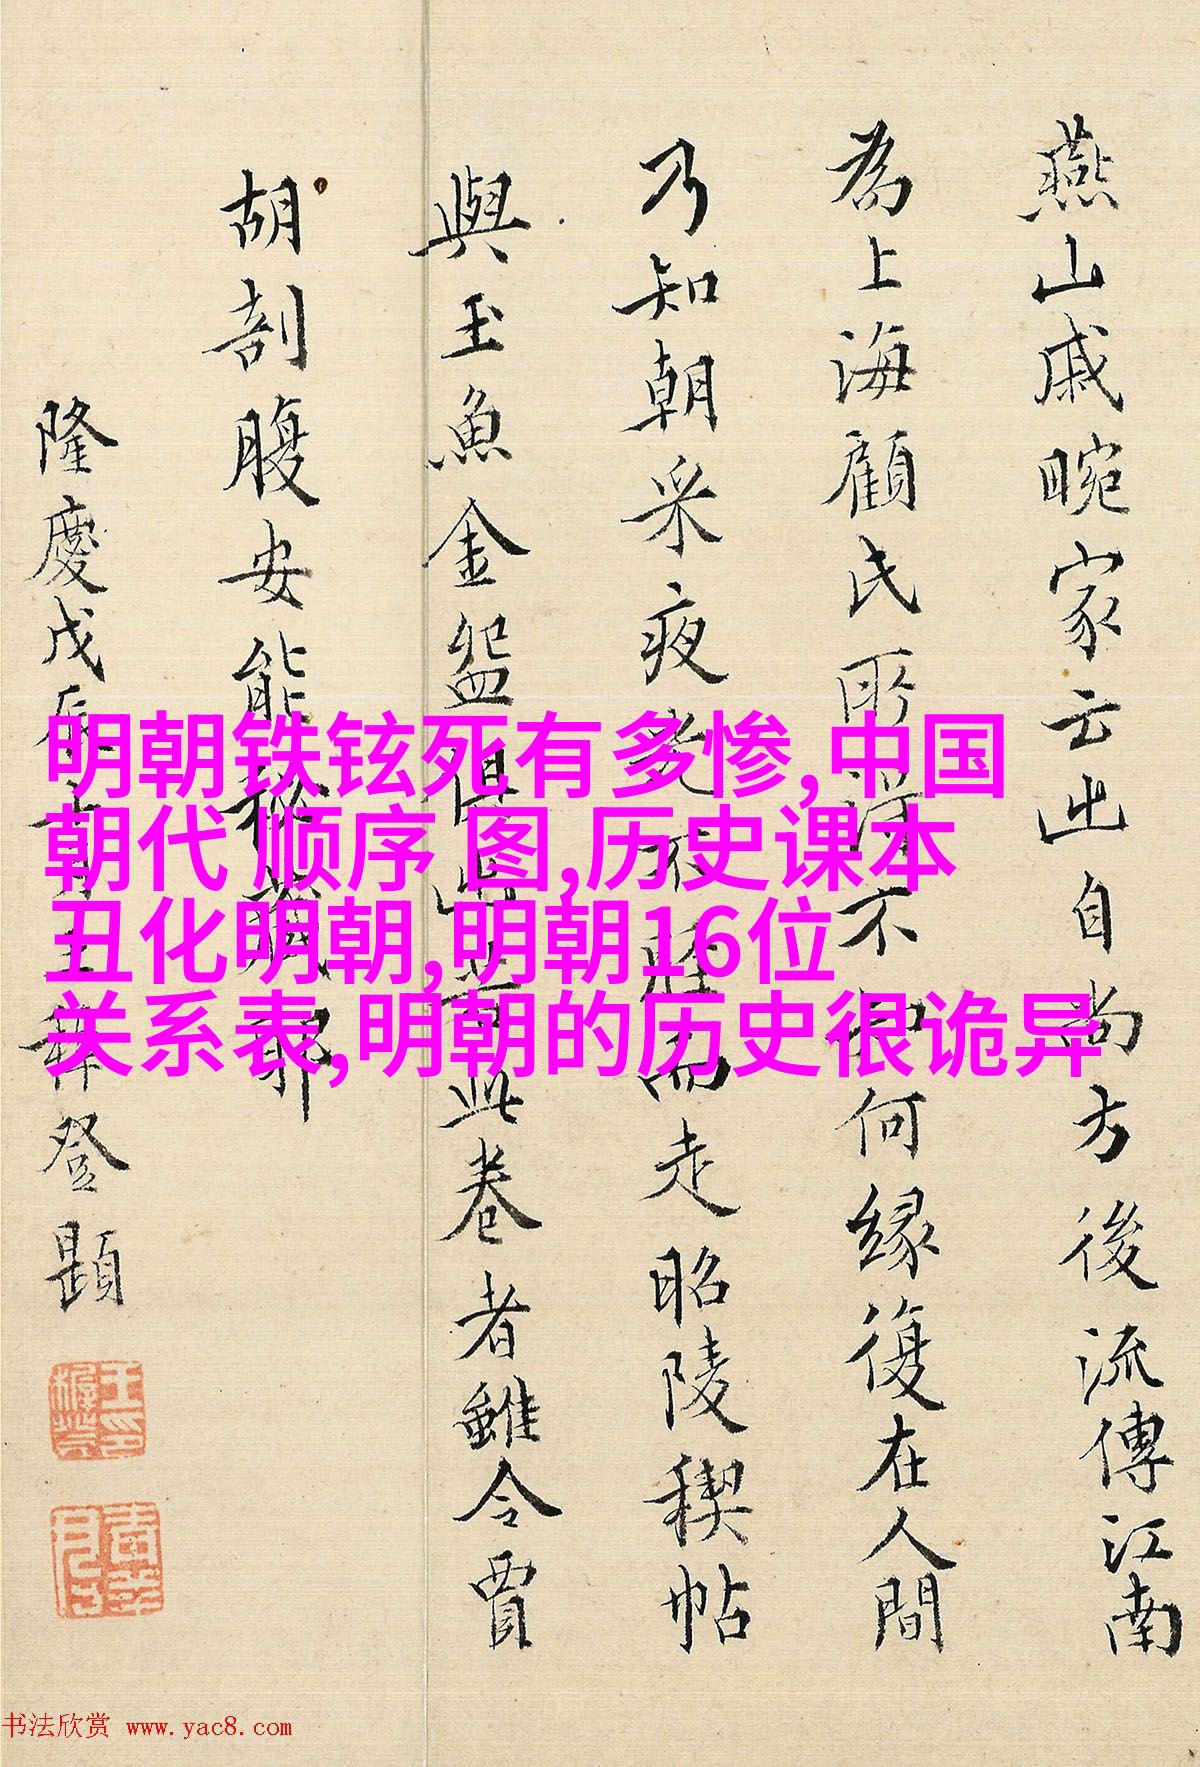 燕山戚畹家云出自尚方後流傳江南
為上海顧氏所得不知何緣復在人間
乃知朝采夜光不脛而走昭陵稧帖
與玉魚金盌俱出昔此卷者雖令賈
胡剖腹安能秘藏耶
隆慶戊辰十月王穉登題
明朝铁铉死有多惨,中国
朝代 顺序 图,历史课本
丑化明朝,明朝16位
关系表,明朝的历史很诡异
书法欣赏 www.yac8.com